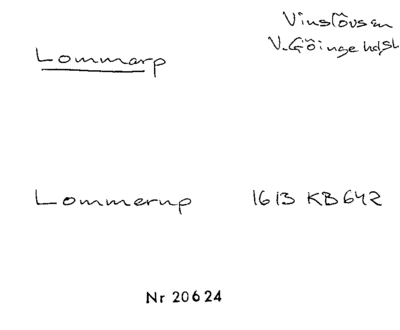 Vinslövs sn
V. Göinge hd sk
Lommarp
Lommerup 1613 KB 642
Nr 20624